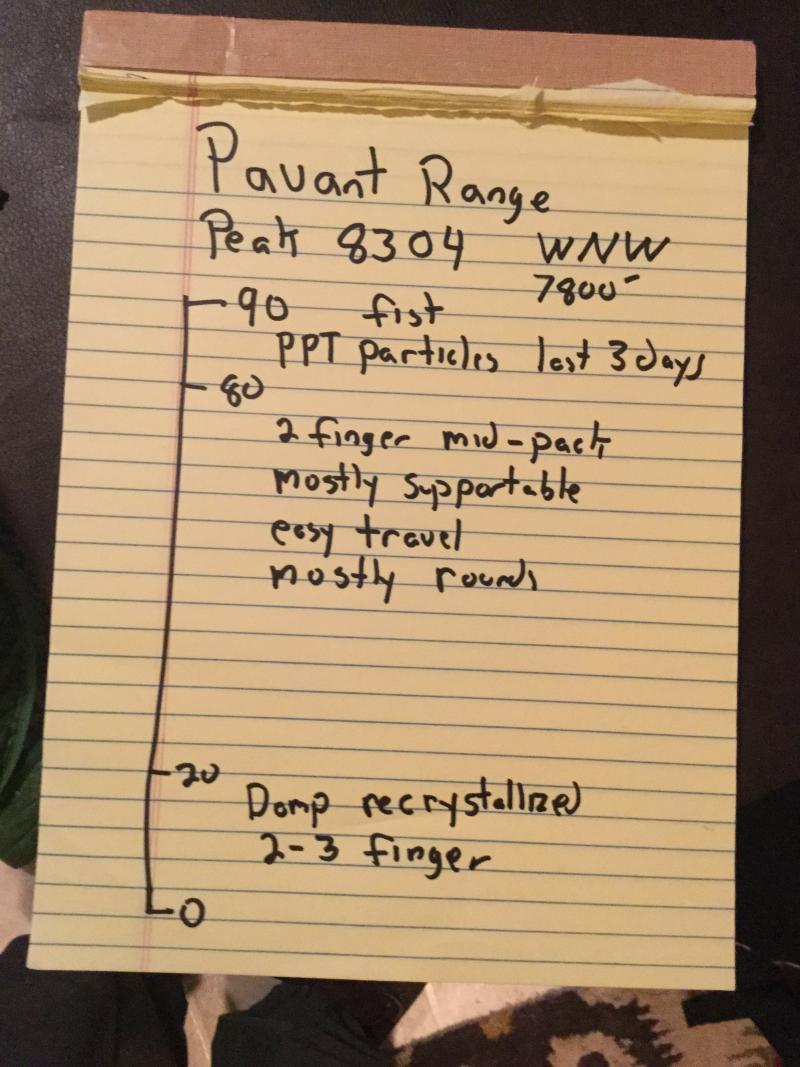 Pavant Range
Peak 8304 WNW
7800'
90 fist
PPT particles last 3 days
80
2 finger mid-pack
mostly supportable
easy travel
mostly rounds
20
Damp recrystallized
2-3 finger
0